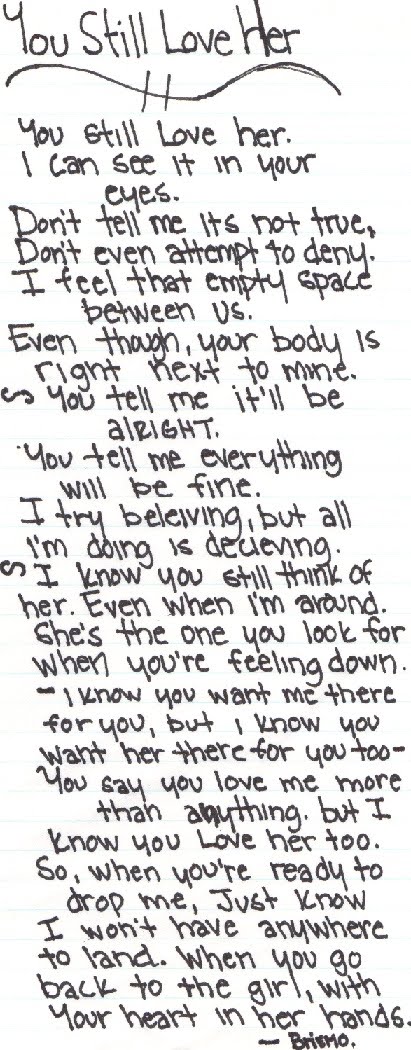 You Still Love Her
You still Love her.
I can see it in your
eyes.
Don't tell me Its not true,
Don't even attempt to deny.
I feel that empty space
between us.
Even though, your body is
right next to mine.
You tell me it'll be
alRIGHT.
You tell me everything
will be fine.
I try beleiving, but all
I'm doing is decieving.
I know you still think of
her. Even when i'm around.
She's the one you look for
when you're feeling down.
- I know you want me there
for you, but i know you
want her there for you too-
You say you love me more
than anything. but I
know you Love her too.
So, when you're ready to
drop me, Just know
I won't have anywhere
to land. When you go
back to the girl, with
Your heart in her hands.
- Brismo.